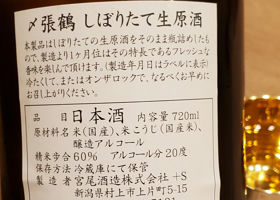 〆張鶴 しぼりたて生原酒
本製品はしぼりたての生原酒をそのまま瓶詰めしたも
ので、製造より1ヶ月位はその特長であるフレッシュな
香味を楽しんで頂けます。(製造年月日はラベルに表示)
冷たくして、またはオンザロックで、なるべくお早めに
お召し上がりください。
品目 日本酒 内容量 720ml
原材料名 米(国産)、米こうじ(国産米)、
醸造アルコール
精米歩合 60% アルコール分 20度
保存方法 冷蔵庫にて保管
製造者 宮尾酒造株式会社 +S
新潟県村上市上片町5-15